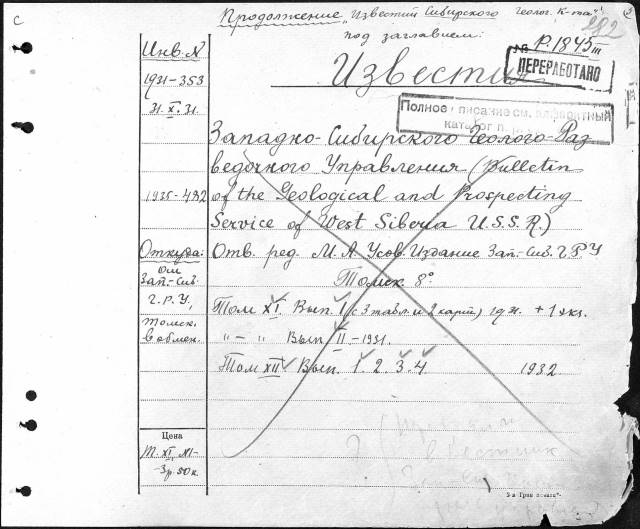 с
Продолжение „Известий Сибирского геолог. К-та"
под заглавием:
282
P.1845 III
ПЕРЕРАБОТАНО
Инв. N
Известия
1931-353
31.X.31.
Полное описание см. алфавитный
каталог
Западно-Сибирского Геолого-Раз
ведочного Управления (Bulletin
1935-492
of the Geological and Prospecting
Service of West Siberia U.S.S.R.)
Откуда:
Отв. ред. М. А. Усов. Издание Зап.-Сиб. Г.Р.У
От
Зап.-Сиб.
Г.Р.У,
Томск.
в обмен.
Томск 8°
Том XI. Вып. I (с 3 табл. и 2 карт.) 1931. + 1 экз.
„ - „ Вып II - 1931.
Том XII Вып. 1. 2. 3. 4 1932
Цена
Т. XI, XI-
3р. 50к.
Вестник